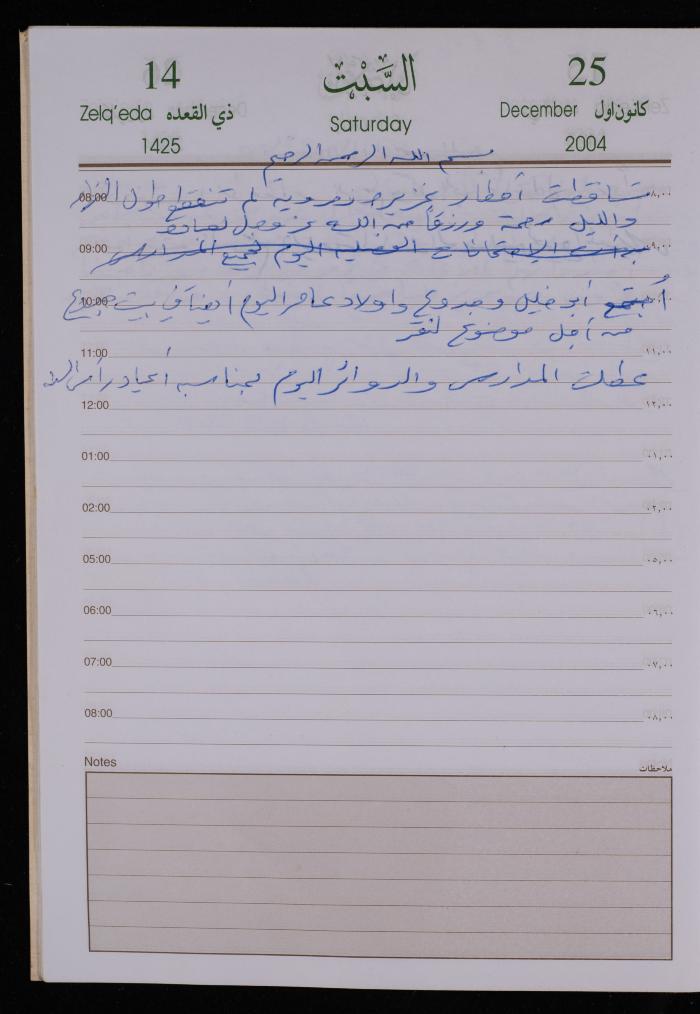 14 السَّبْت 25
Zelq'eda ذي القعده Saturday December كانون اول
1425 2004
بسم الله الرحمن الرحيم
08:00 تساقطت أمطار غزيره ورعديه لم تنقطع طول النهار ٠٨,٠٠
والليل رحمة ورزقاً من الله عز وجل لعباده
09:00 بدأت الامتحانات الفصليه اليوم لجميع المدارس ٠٩,٠٠
10:00 أجتمع أبو خليل وجدوع واولاد عامر اليوم أيضاً في بيت جدوع ١٠,٠٠
من أجل موضوع
11:00 ١١,٠٠
عطلت المدارس والدوائر اليوم بمناسبه أعياد رأس السنه
12:00 ١٢,٠٠
01:00 ٠١,٠٠
02:00 ٠٢,٠٠
05:00 ٠٥,٠٠
06:00 ٠٦,٠٠
07:00 ٠٧,٠٠
08:00 ٠٨,٠٠
Notes ملاحظات